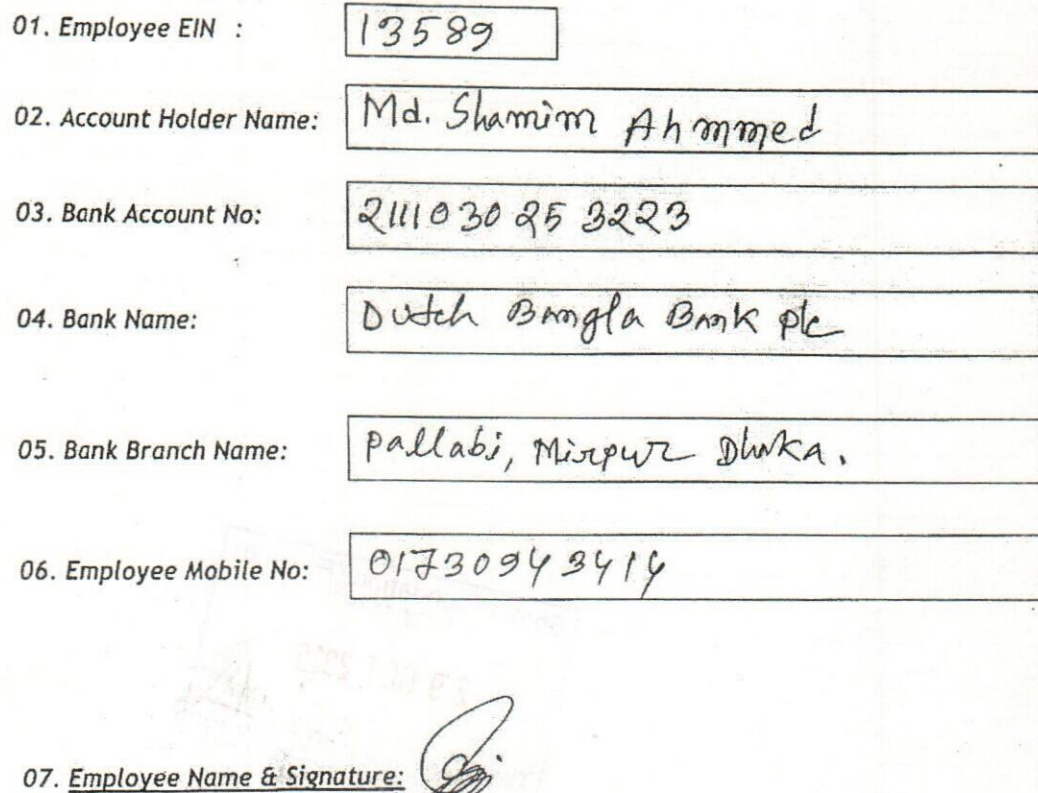 01. Employee EIN : 13589
02. Account Holder Name: Md. Shamim Ahmmed
03. Bank Account No: 2111030253223
04. Bank Name: Dutch Bangla Bank plc
05. Bank Branch Name: Pallabi, Mirpur Dhaka.
06. Employee Mobile No: 01730943414
07. Employee Name & Signature: